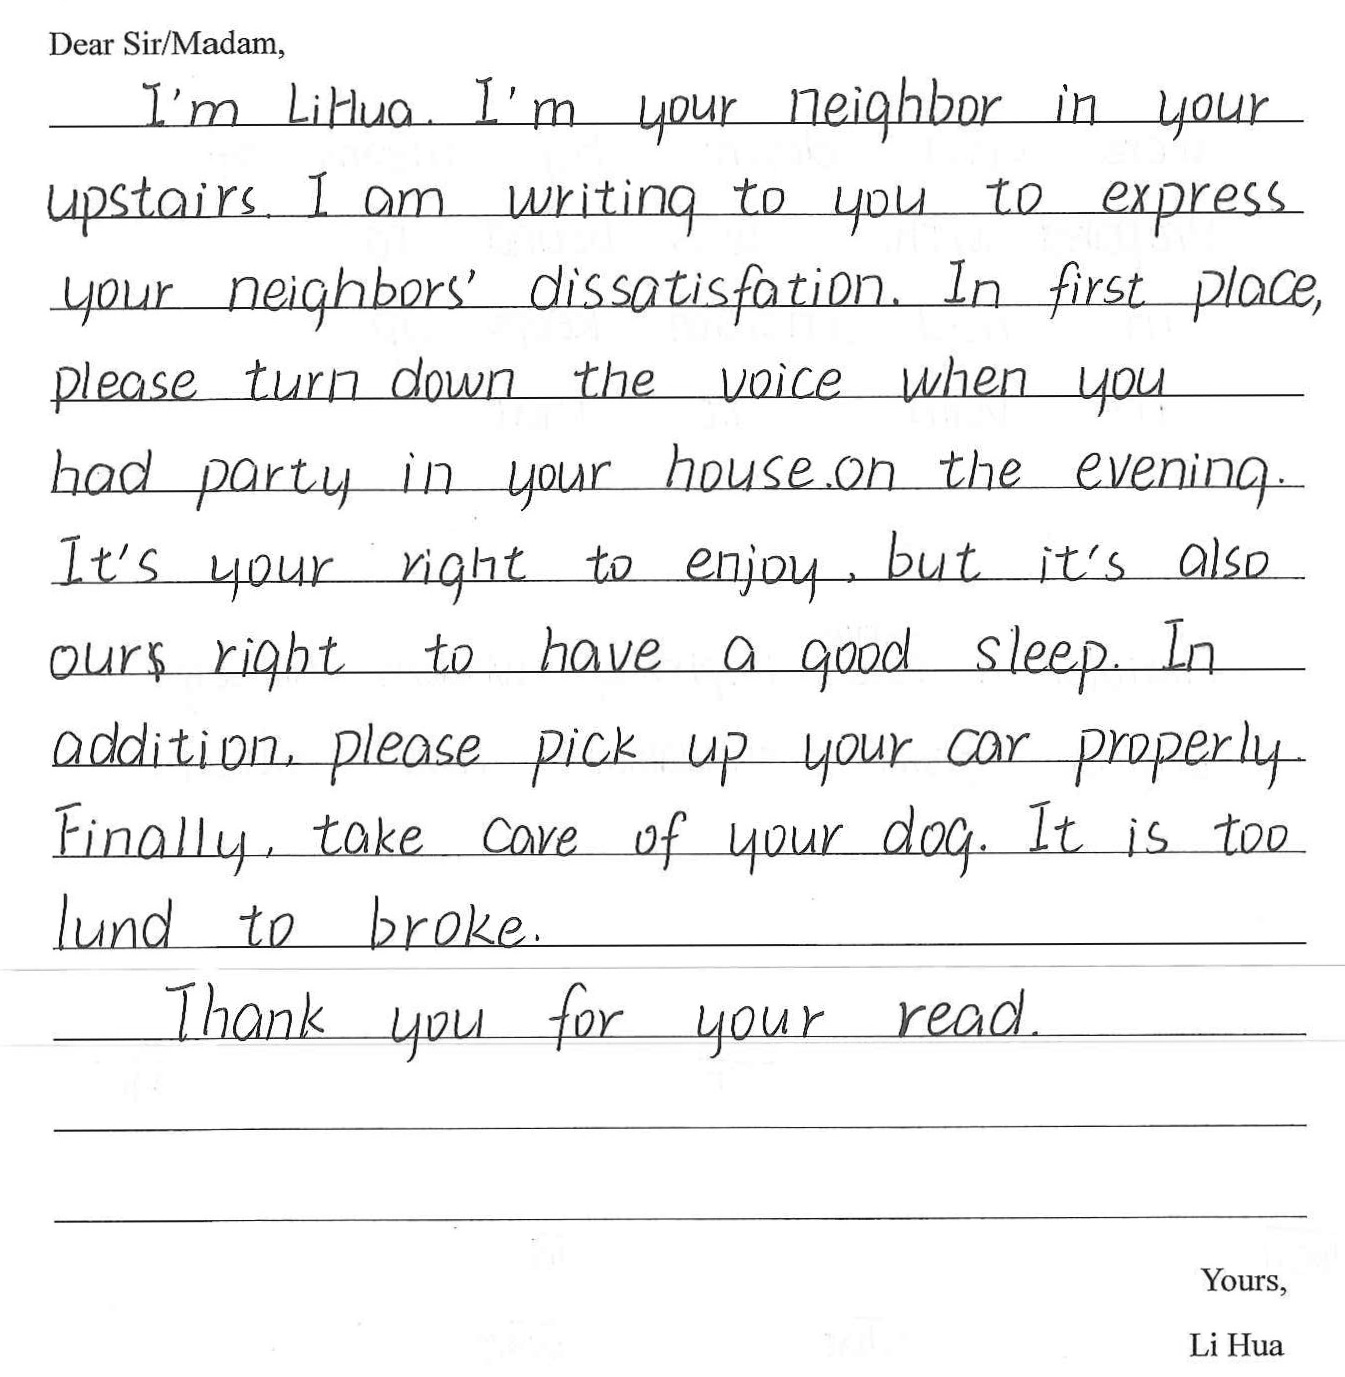 Dear Sir/Madam,
I'm LiHua. I'm your neighbor in your
upstairs. I am writing to you to express
your neighbors' dissatisfation. In first place,
please turn down the voice when you
had party in your house.on the evening.
It's your right to enjoy, but it's also
ours right to have a good sleep. In
addition, please pick up your car properly.
Finally, take care of your dog. It is too
lund to broke.
Thank you for your read.
Yours,
Li Hua